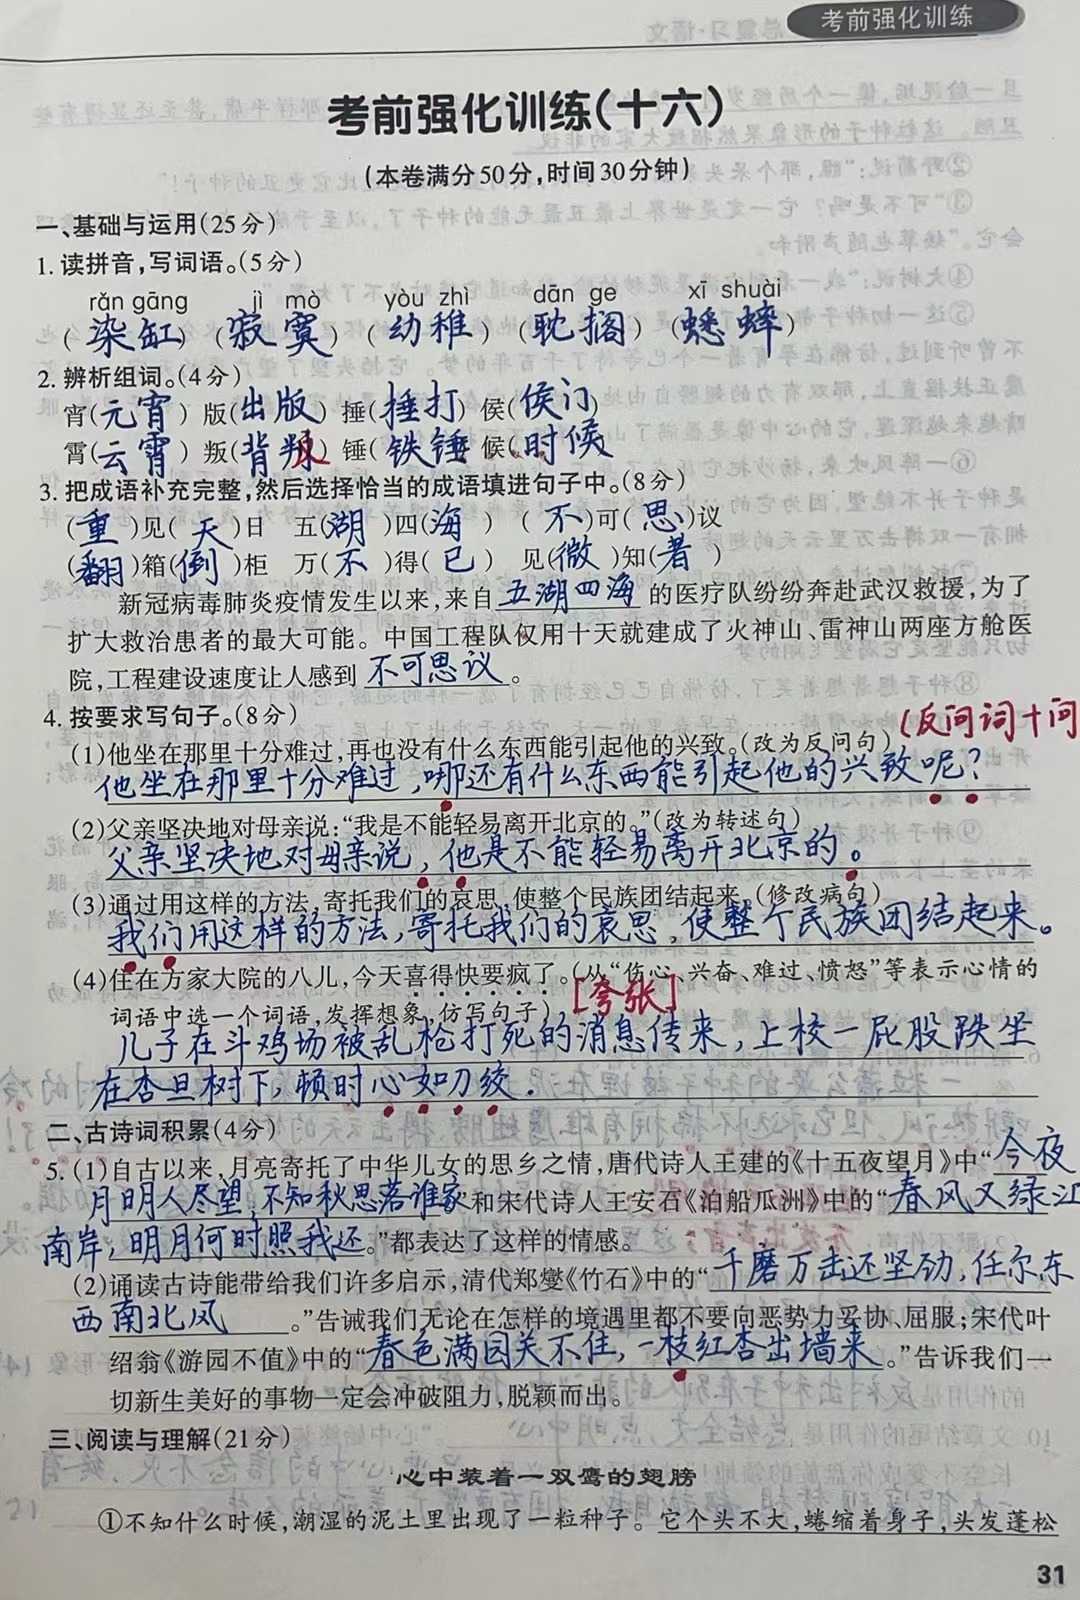 考前强化训练
考前强化训练(十六)
(本卷满分50分,时间30分钟)
一、基础与运用(25分)
1.读拼音,写词语。(5分)
rǎn gāng jì mò yòu zhì dān ge xī shuài
(染缸) (寂寞) (幼稚) (耽搁) (蟋蟀)
2.辨析组词。(4分)
宵(元宵) 版(出版) 捶(捶打) 侯(侯门)
霄(云霄) 叛(背叛) 锤(铁锤) 候(时候)
3.把成语补充完整,然后选择恰当的成语填进句子中。(8分)
(重)见(天)日 五(湖)四(海) (不)可(思)议
(翻)箱(倒)柜 万(不)得(已) 见(微)知(著)
新冠病毒肺炎疫情发生以来,来自五湖四海的医疗队纷纷奔赴武汉救援,为了
扩大救治患者的最大可能。中国工程队仅用十天就建成了火神山、雷神山两座方舱医
院,工程建设速度让人感到不可思议。
4.按要求写句子。(8分)
(反问词十问
(1)他坐在那里十分难过,再也没有什么东西能引起他的兴致。(改为反问句)
他坐在那里十分难过,哪还有什么东西能引起他的兴致呢?
(2)父亲坚决地对母亲说:“我是不能轻易离开北京的。”(改为转述句)
父亲坚决地对母亲说,他是不能轻易离开北京的。
(3)通过用这样的方法,寄托我们的哀思,使整个民族团结起来。(修改病句)
我们用这样的方法,寄托我们的哀思,使整个民族团结起来。
(4)住在方家大院的八儿,今天喜得快要疯了。(从“伤心、兴奋、难过、愤怒”等表示心情的
词语中选一个词语,发挥想象,仿写句子)[夸张]
儿子在斗鸡场被乱枪打死的消息传来,上校一屁股跌坐
在杏旦树下,顿时心如刀绞.
二、古诗词积累(4分)
5.(1)自古以来,月亮寄托了中华儿女的思乡之情,唐代诗人王建的《十五夜望月》中“今夜
月明人尽望,不知秋思落谁家”和宋代诗人王安石《泊船瓜洲》中的“春风又绿江
南岸,明月何时照我还。”都表达了这样的情感。
(2)诵读古诗能带给我们许多启示,清代郑燮《竹石》中的“千磨万击还坚劲,任尔东
西南北风。”告诫我们无论在怎样的境遇里都不要向恶势力妥协、屈服;宋代叶
绍翁《游园不值》中的“春色满园关不住,一枝红杏出墙来。”告诉我们一
切新生美好的事物一定会冲破阻力,脱颖而出。
三、阅读与理解(21分)
心中装着一双鹰的翅膀
①不知什么时候,潮湿的泥土里出现了一粒种子。它个头不大,蜷缩着身子,头发蓬松
31